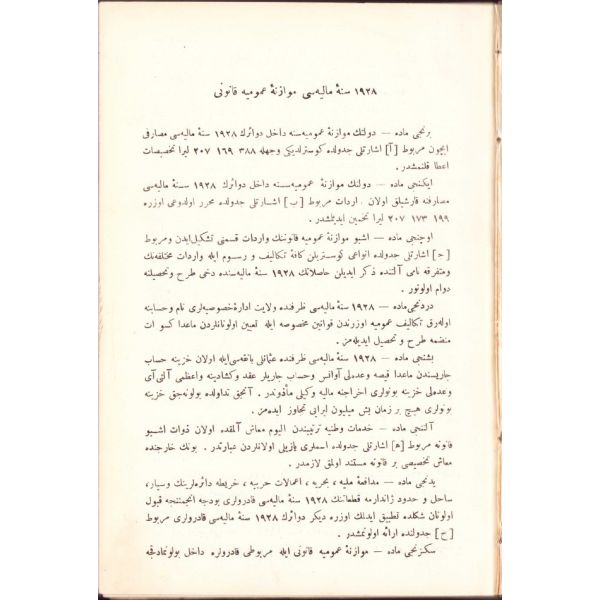 ١٩٢٨ سنهٔ مالیه‌سی موازنهٔ عمومیه قانونی
برنجی ماده — دولتك موازنهٔ عمومیه‌سنه داخل دوائرك ١٩٢٨ سنهٔ مالیه‌سی مصارفی
ایچون مربوط [آ] اشارتلی جدولده كوسترلدیكی وجهله ٣٨٨ ١٦٩ ٢٠٧ لیرا تخصیصات
اعطا قلنمشدر .
ایكنجی ماده — دولتك موازنهٔ عمومیه‌سنه داخل دوائرك ١٩٢٨ سنهٔ مالیه‌سی
مصارفنه قارشیلق اولان واردات مربوط [ب] اشارتلی جدولده محرر اولدوغی اوزره
١٩٩ ١٧٣ ٢٠٧ لیرا تخمین ایدیلمشدر .
اوچنجی ماده — اشبو موازنهٔ عمومیه قانوننك واردات قسمنی تشكیل ایدن ومربوط
[ج] اشارتلی جدولده انواعی كوستریلن كافهٔ تكالیف و رسوم ایله واردات مختلفه‌نك
ومتفرقه نامی آلتنده ذكر ایدیلن حاصلاتك ١٩٢٨ سنهٔ مالیه‌سنده دخی طرح وتحصیلنه
دوام اولونور .
دردنجی ماده — ١٩٢٨ سنهٔ مالیه‌سی ظرفنده ولایت ادارهٔ خصوصیه‌لری نام وحسابنه
اوله‌رق تكالیف عمومیه اوزرندن قوانین مخصوصه ایله تعیین اولونانلردن ماعدا كسورات
منضمه طرح و تحصیل ایدیله‌مز .
بشنجی ماده — ١٩٢٨ سنهٔ مالیه‌سی ظرفنده عثمانلی بانقه‌سی ایله اولان خزینه حساب
جاریسندن ماعدا قیصه وعده‌لی آوانس وحساب جاریلر عقد وكشادینه واعظمی آلتی آی
وعده‌لی خزینه بونولری اخراجنه مالیه وكیلی مأذوندر . آنجق تداولده بولونه‌جق خزینه
بونولری هیچ بر زمان بش میلیون لیرایی تجاوز ایده‌مز .
آلتنجی ماده — خدمات وطنیه ترتیبندن الیوم معاش آلمقده اولان ذوات اشبو
قانونه مربوط [ه] اشارتلی جدولده اسملری یازیلی اولانلردن عبارتدر . بونك خارجنده
معاش تخصیصی بر قانونه مستند اولمق لازمدر .
یدنجی ماده — مدافعهٔ ملیه ، بحریه ، اعمالات حربیه ، خریطه دائره‌لرینك وسیار ،
ساحل و حدود ژاندارمه قطعاتنك ١٩٢٨ سنهٔ مالیه‌سی قادرولری بودجه انجمننجه قبول
اولونان شكلده تطبیق ایدلك اوزره دیكر دوائرك ١٩٢٨ سنهٔ مالیه‌سی قادرولری مربوط
[ح] جدولنده ارائه اولونمشدر .
سكزنجی ماده — موازنهٔ عمومیه قانونی ایله مربوطی قادرولره داخل بولونمادقجه